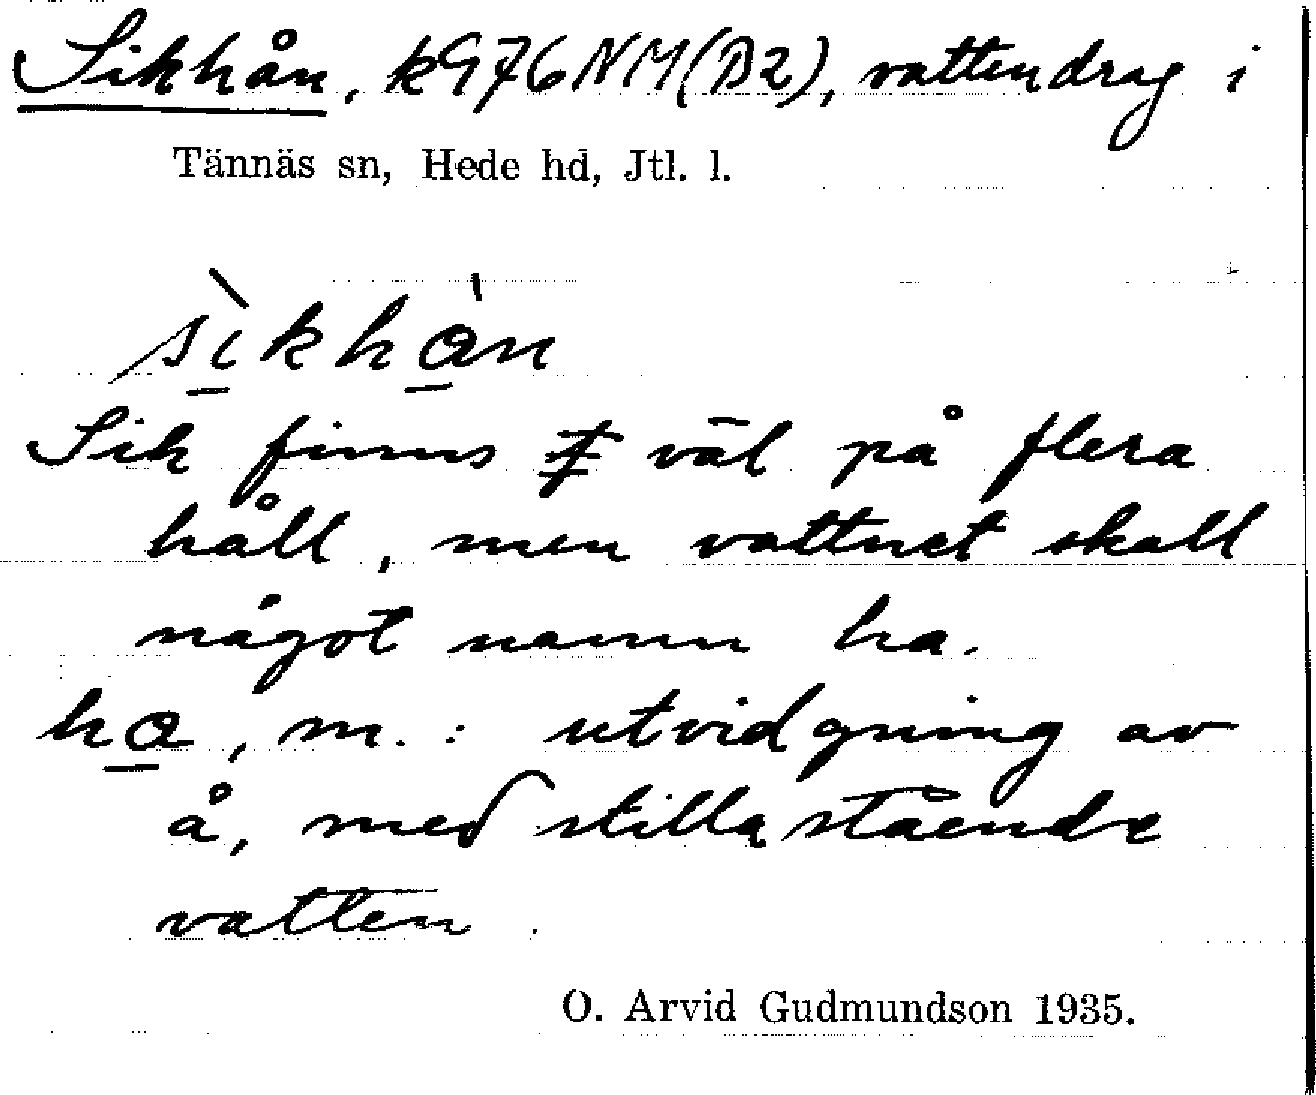 Sikhån, k976NM(B2), vattendrag i
Tännäs sn, Hede hd, Jtl. l.
sìkhàn
Sik finns väl på flera
håll, men vattnet skall
något namn ha.
ha, m. : utvidgning av
å, med stillastående
vatten.
O. Arvid Gudmundson 1935.